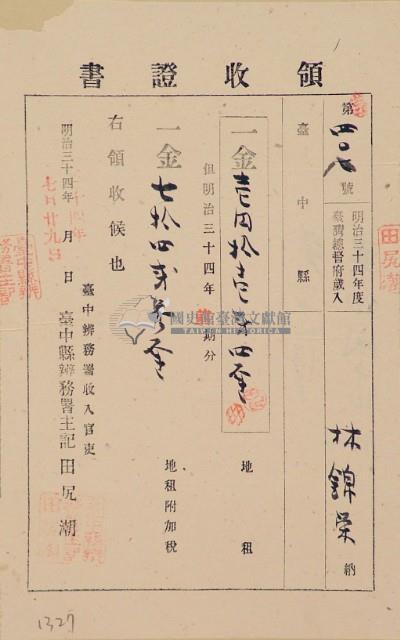 領收證書
第四〇七號
明治三十四年度
臺灣總督府歲入
林錦榮納
臺中縣
一金壱円拾壱戋四厘
地租
但明治三十四年
期分
一金七拾四戋
厘
地租附加稅
右領收候也
明治三十四年 月 日
七月廿九日
臺中辨務署收入官吏
臺中縣辨務署主記田尻潮
田尻潮
國史館臺灣文獻館
TAIWAN HISTORICA
1327